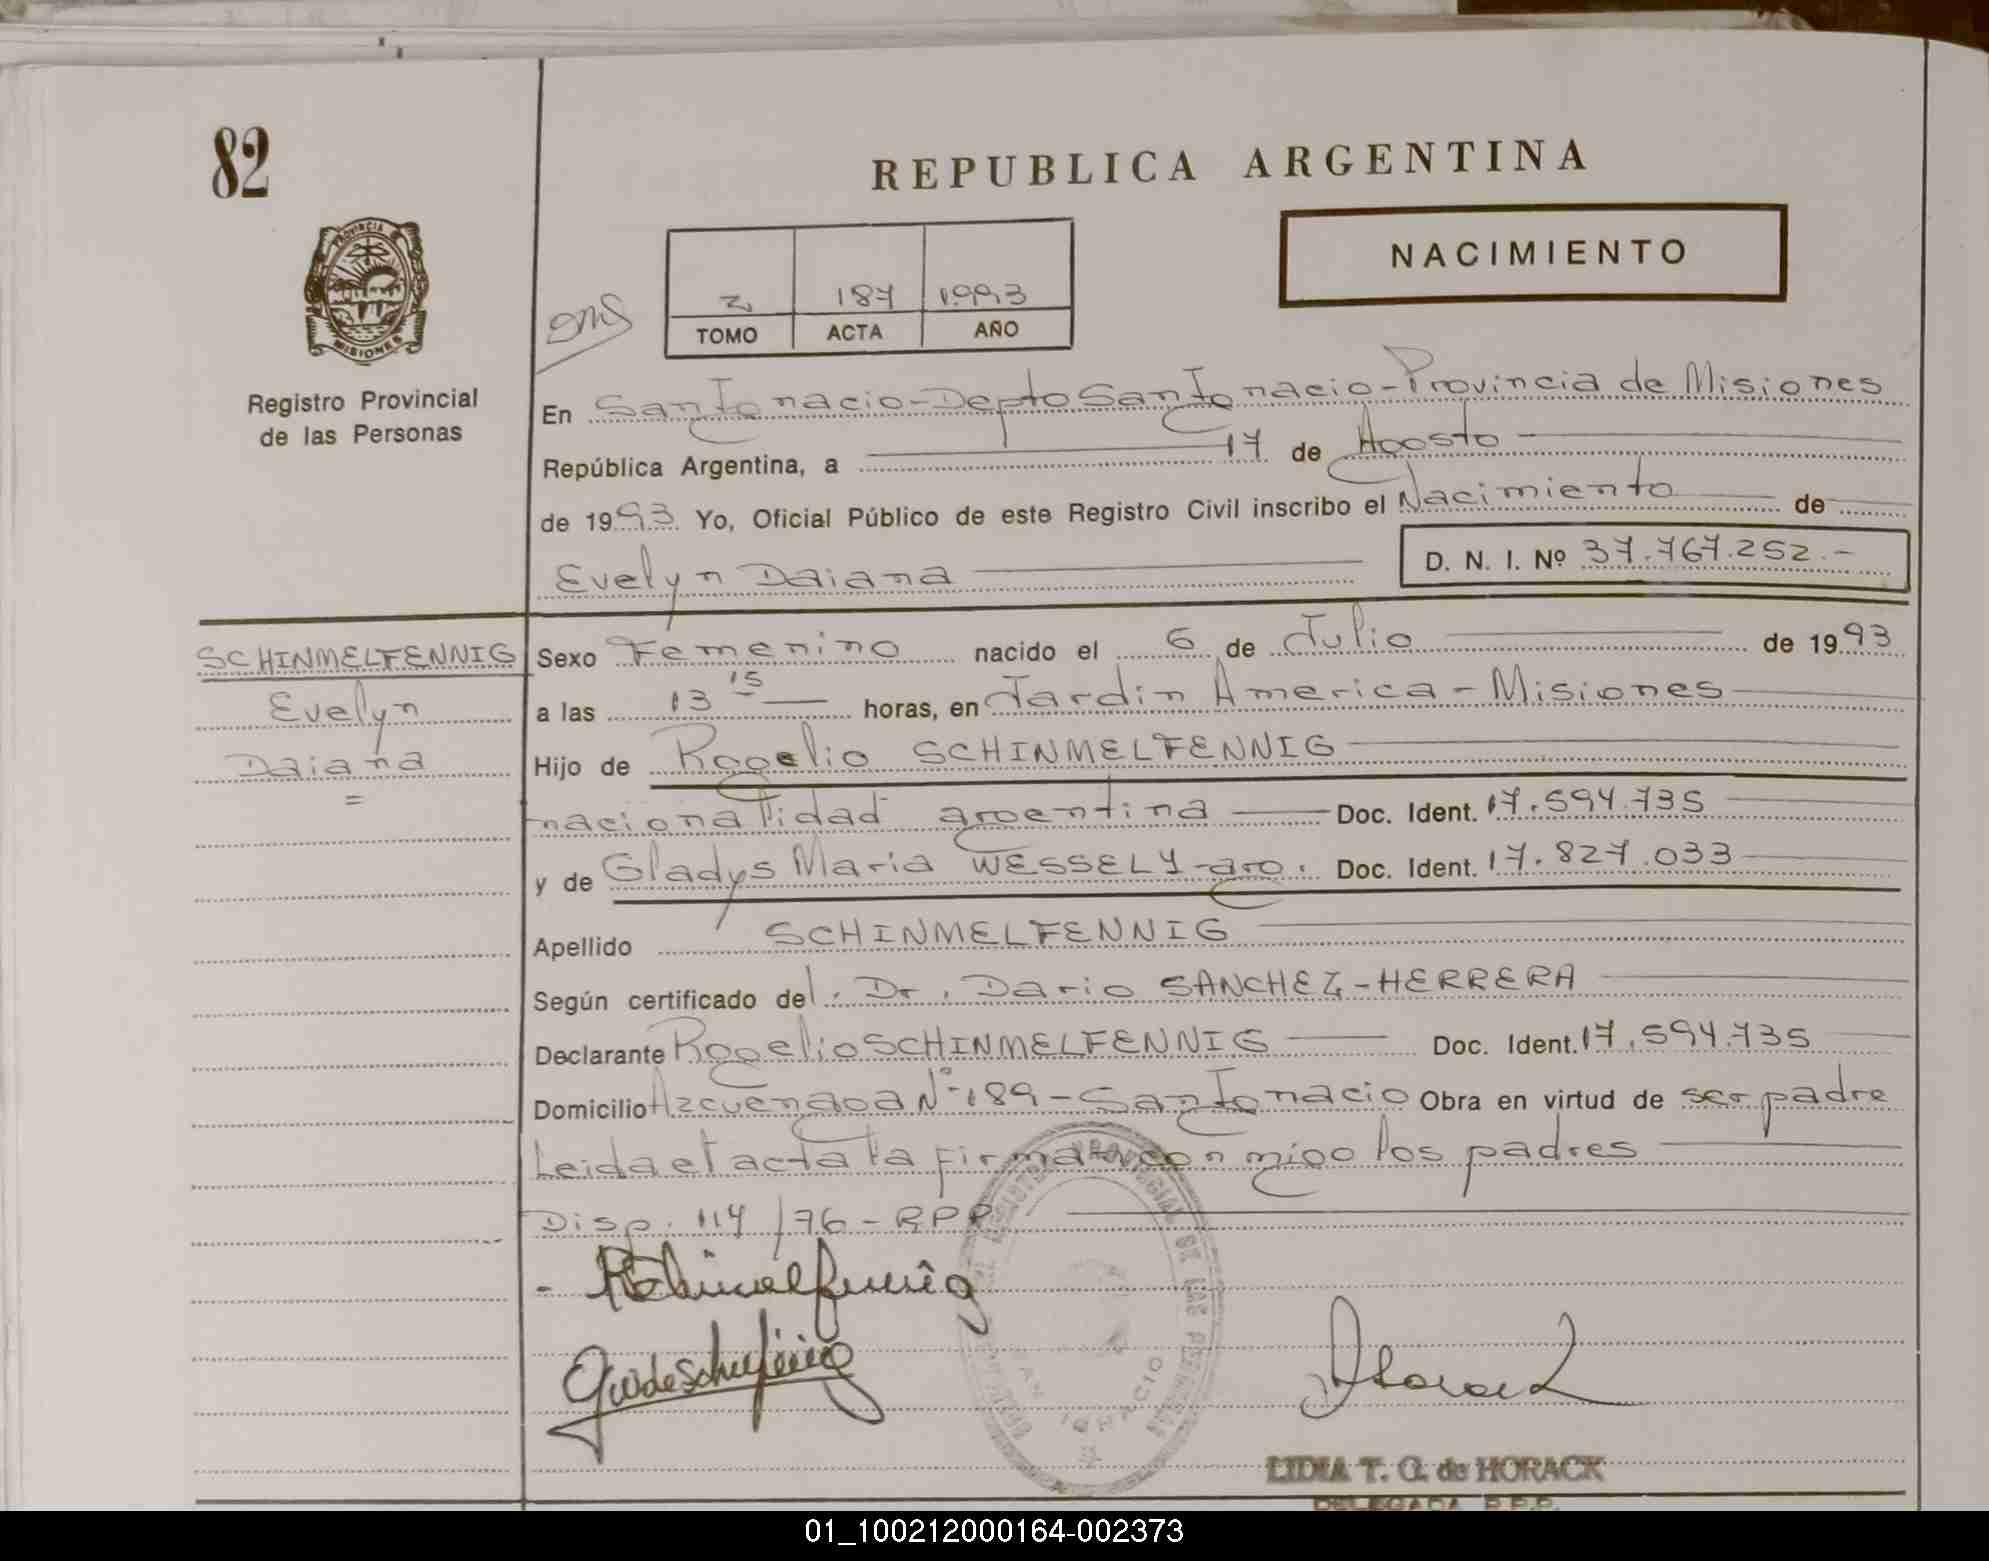 82
REPUBLICA ARGENTINA
PROVINCIA
MISIONES
Registro Provincial
de las Personas
NACIMIENTO
2 187 1993
TOMO ACTA AÑO
En San Ignacio - Depto San Ignacio - Provincia de Misiones
República Argentina, a 17 de Agosto
de 1993 Yo, Oficial Público de este Registro Civil inscribo el Nacimiento de
Evelyn Daiana D. N. I. Nº 37.767.252.-
SCHINMELFENNIG
Evelyn
Daiana
=
Sexo Femenino nacido el 6 de Julio de 1993
a las 13 15 horas, en Jardin America - Misiones
Hijo de Rogelio SCHINMELFENNIG
nacionalidad argentina Doc. Ident. 17.594.735
y de Gladys Maria WESSELY - arg. Doc. Ident. 17.827.033
Apellido SCHINMELFENNIG
Según certificado del. Dr. Dario SANCHEZ - HERRERA
Declarante Rogelio SCHINMELFENNIG Doc. Ident. 17.594.735
Domicilio Azcuenaga Nº 189 - San Ignacio Obra en virtud de ser padre
Leida el acta la firman conmigo los padres
Disp. 114/76 - RPP
SAN IGNACIO
LIDIA T. G. de HORACK
DELEGADA R.P.P.
01_100212000164-002373